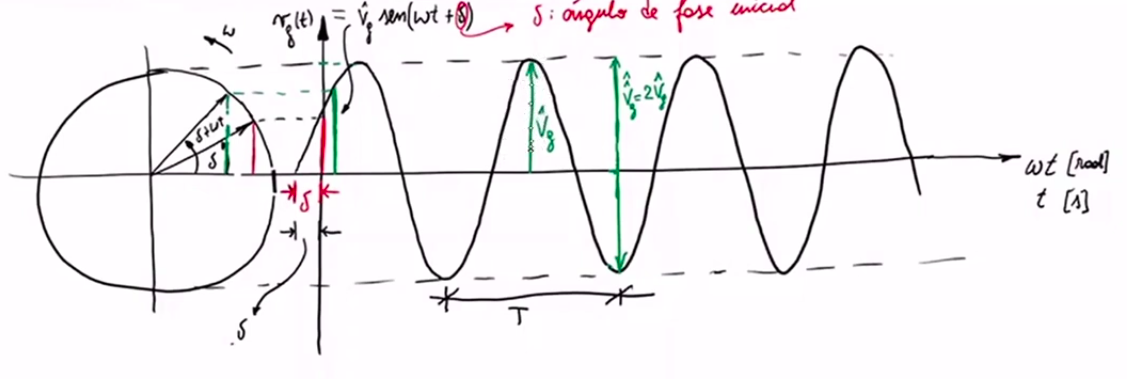 v_g(t) = V̂_g sen(ωt + δ) → δ: ángulo de fase inicial
ω
δ+ωt
δ
V̂_g
V̂̂_g = 2V̂_g
ωt [rad]
t [s]
δ
δ
T